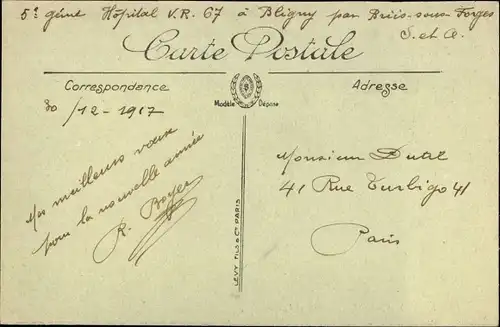 5e géne Hôpital V.R. 67 à Bligny par Briis-sous-Forges
S. et O.
Carte Postale
Correspondance
Adresse
Modèle Déposé
30/12-1917
Mes meilleurs vœux
pour la nouvelle année
R. Boyer
Monsieur Dutal
41 Rue Turbigo 41
Paris
LEVY FILS & Cie PARIS